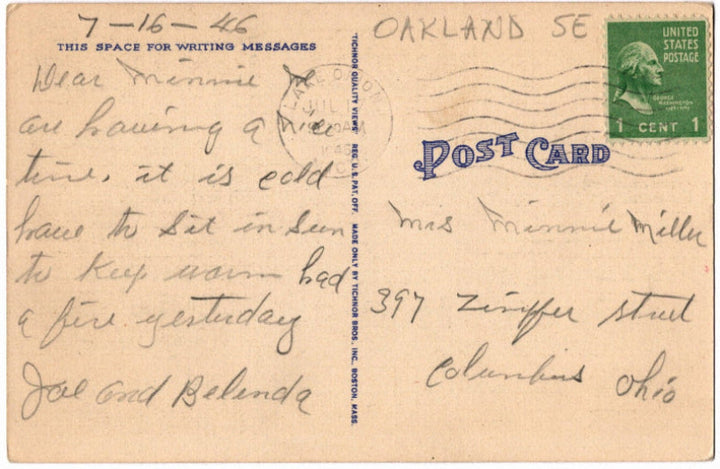 7-16-46
THIS SPACE FOR WRITING MESSAGES
Dear Minnie We
are having a nice
time, it is cold
have to sit in sun
to keep warm had
a fire yesterday
Joe and Belinda
TICHNOR QUALITY VIEWS REG. U.S. PAT. OFF. MADE ONLY BY TICHNOR BROS., INC., BOSTON, MASS.
OAKLAND SE
LAKE ORION
JUL
AM
UNITED
STATES
POSTAGE
GEORGE
WASHINGTON
1 CENT 1
POST CARD
Mrs Minnie Miller
397 Street
Columbus Ohio